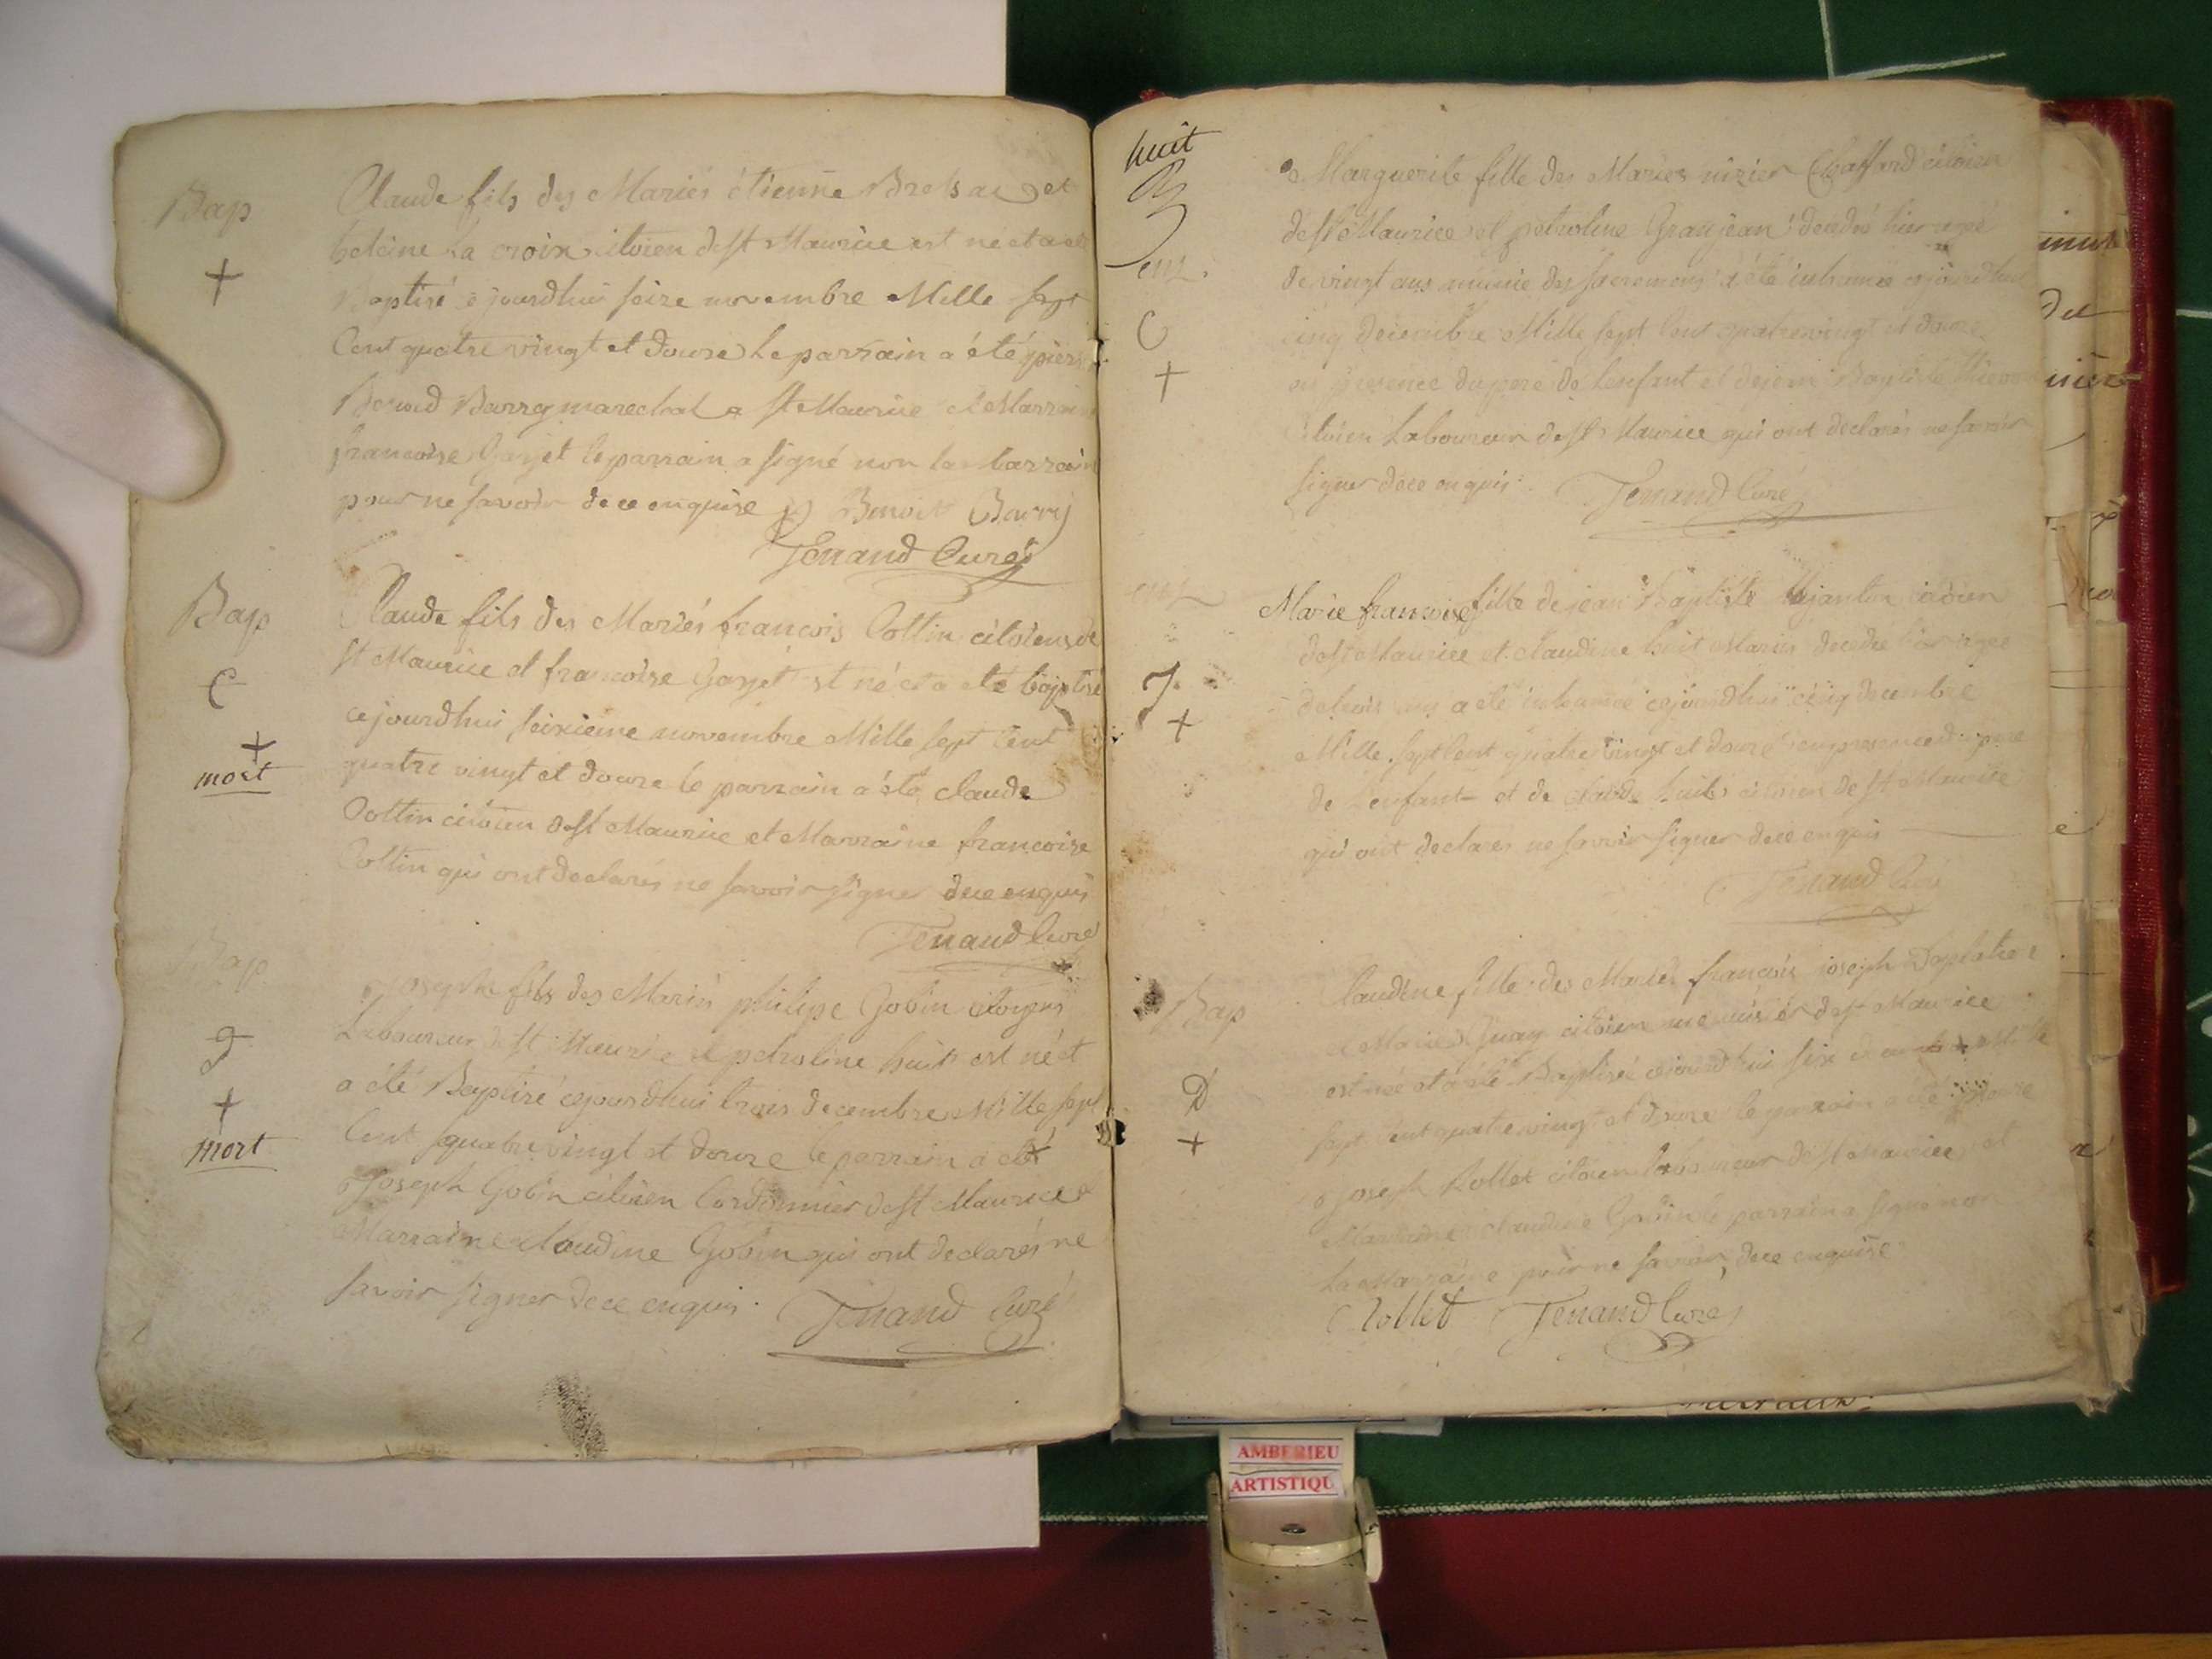 Bap
+
Claude fils des Mariés étienne et
la croix citoien de st Maurice est né et a été
Baptisé cejourdhui seize novembre Mille sept
Cent quatre vingt et douze Le parrain a été pierre
Benoid Barry marechal a st Maurice et Marraine
francoise Garjet le parrain a signé non la Marraine
pour ne savoir de ce enquise Benoit Barry
Tenand Curé
Bap
C
+
mort
Claude fils des Mariés francois Cottin citoiens de
st Maurice et francoise Garjet est né et a eté baptisé
cejourdhui seizieme novembre Mille sept Cent
quatre vingt et douze le parrain a été claude
Cottin citoien de st Maurice et Marraine francoise
Cottin qui ont declarés ne savoir signer de ce enquis
Tenand Curé
Bap
g
+
mort
joseph fils des Mariés philipe Gobin citoyens
Laboureur de st Maurice et petroline huit est né et
a été Baptisé cejourdhui trois decembre Mille sept
Cent quatre vingt et douze le parrain a eté
joseph Gobin citoien Cordonnier de st Maurice et
Marraine Claudine Gobin qui ont declarés ne
savoir signer de ce enquis.
Tenand Curé
huit
ent.
C
+
Marguerite fille des Mariés nizier Chaffard citoien
de st Maurice et petroline Granjean decedée hier agée
de vingt ans munie des sacremens a été inhumée cejourdhui
cinq decembre Mille sept Cent quatrevingt et douze
en presence du pere de Lenfant et de jean Baptiste
Citoien Laboureur de st Maurice qui ont declarés ne savoir
signer de ce enquis.
Tenand Curé
ent
J
+
Marie francoise fille de jean Baptiste citoien
de st Maurice et claudine huit Mariés decedée hier agée
de trois ans a été inhumée cejourdhui cinq decembre
Mille sept Cent quatre vingt et douze en presence du pere
de Lenfant et de claude huit citoien de st Maurice
qui ont declarés ne savoir signer de ce enquis
Tenand Curé
Bap
D
+
Claudine fille des Mariés francois joseph
et Marie citoien menuisier de st Maurice
est née et a été Baptisée cejourdhui six decembre Mille
sept Cent quatre vingt et douze le parrain a été
joseph Rollet citoien Laboureur de st Maurice et
Marraine claudine Gobin le parrain a signé non
La Marraine pour ne savoir de ce enquise
Rollet Tenand Curé
AMBERIEU
ARTISTIQU